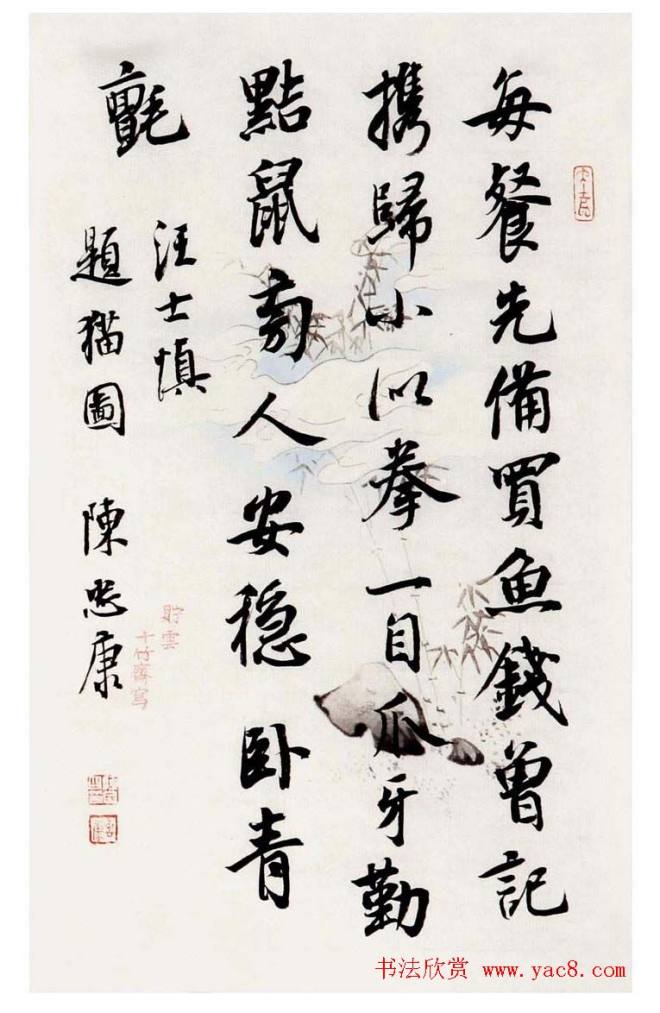 每餐先備買魚錢曾記
携歸小似拳一自爪牙勤
點鼠旁人安穩卧青
氈
汪士慎
題猫圖 陳忠康
貯雲
十竹齋寫
书法欣赏 www.yac8.com